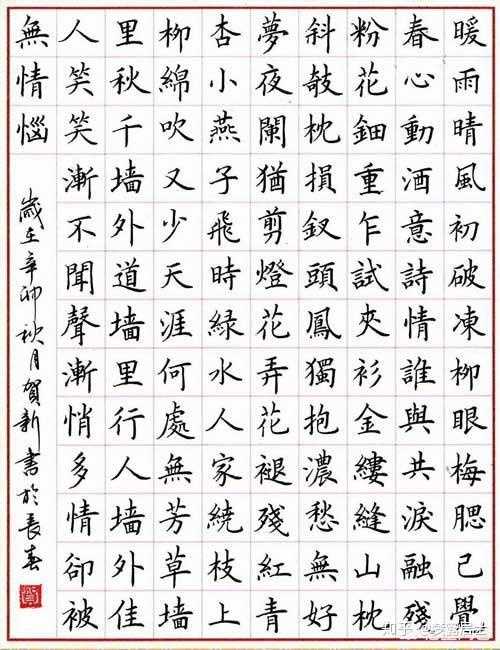 暖雨晴風初破凍柳眼梅腮已覺
春心動酒意詩情誰與共淚融殘
粉花鈿重乍試夾衫金縷縫山枕
斜敧枕損釵頭鳳獨抱濃愁無好
夢夜闌猶剪燈花弄花褪殘紅青
杏小燕子飛時綠水人家繞枝上
柳綿吹又少天涯何處無芳草墻
里秋千墻外道墻里行人墻外佳
人笑笑漸不聞聲漸悄多情卻被
無情惱
歲在辛卯秋月賀新書於長春
知乎